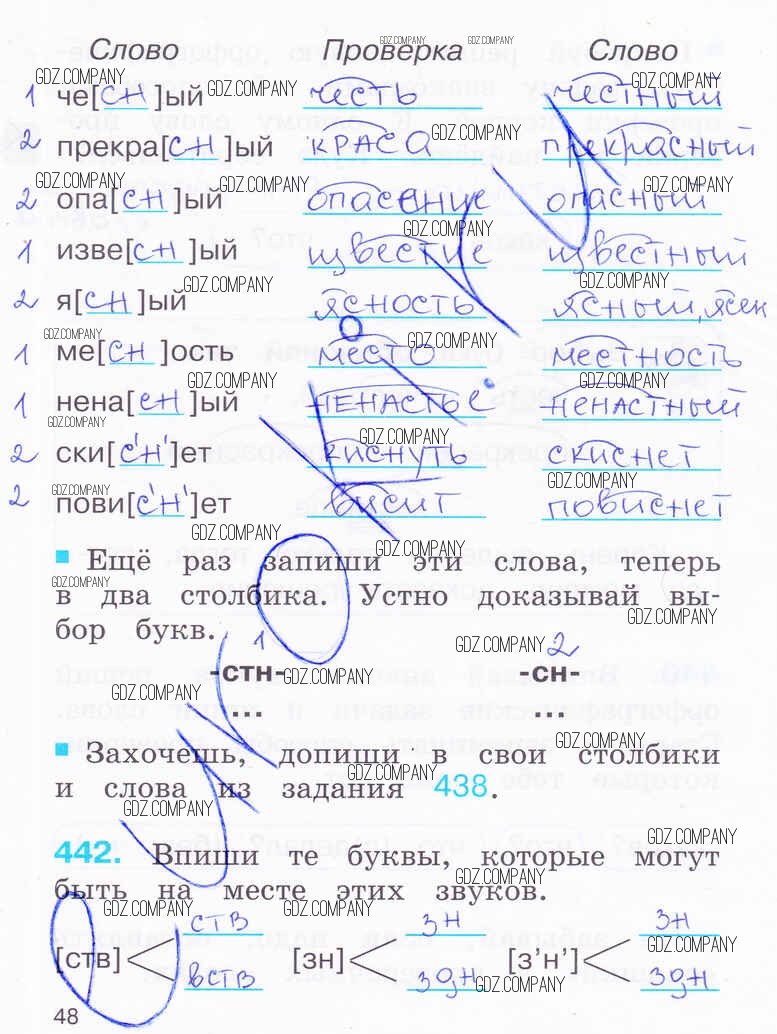 Слово Проверка Слово
1 че[сн]ый честь честный
2 прекра[сн]ый краса прекрасный
2 опа[сн]ый опасение опасный
1 изве[сн]ый известие известный
2 я[сн]ый ясность ясный, ясен
1 ме[сн]ость место местность
1 нена[сн]ый ненастье ненастный
2 ски[с'н']ет киснуть скиснет
2 пови[с'н']ет висит повиснет
Ещё раз запиши эти слова, теперь
в два столбика. Устно доказывай вы-
бор букв.
1 2
-стн- -сн-
... ...
Захочешь, допиши в свои столбики
и слова из задания 438.
442. Впиши те буквы, которые могут
быть на месте этих звуков.
ств зн зн
[ств] [зн] [з'н']
вств здн здн
48
GDZ.COMPANY